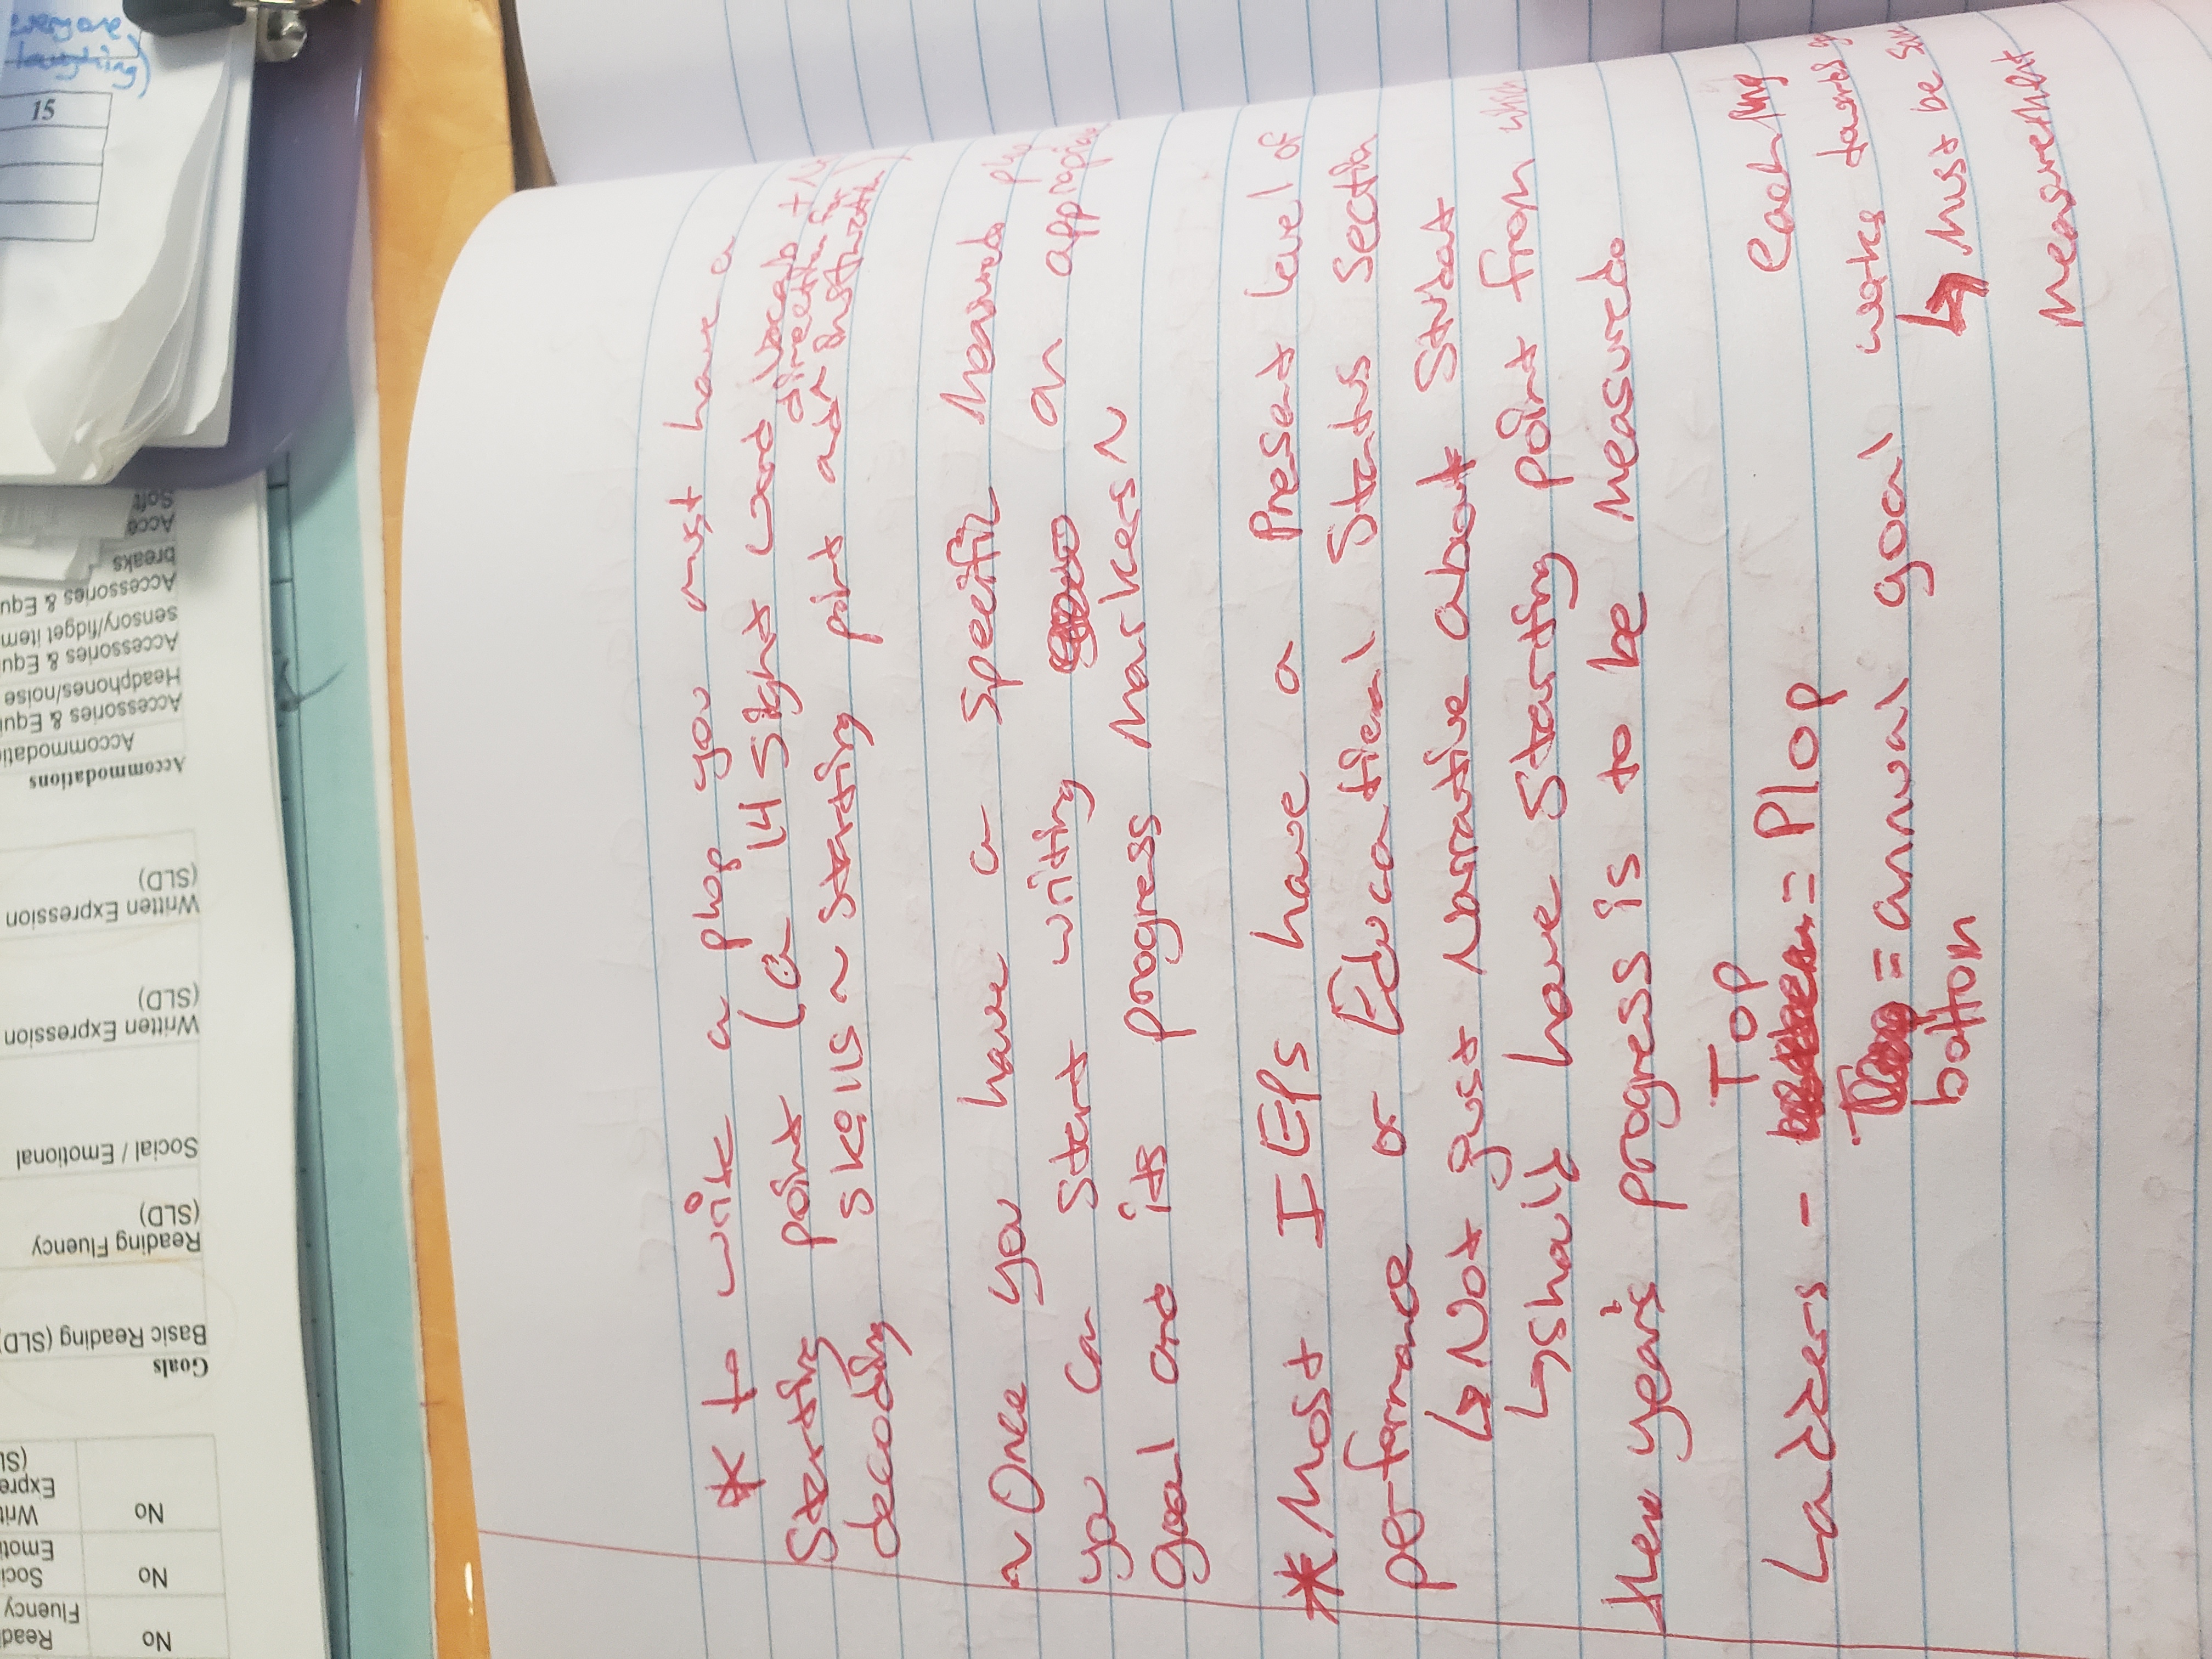 No
Readi
Fluency
No
Soci
Emoti
No
Writ
Expre
(SL
Goals
Basic Reading (SLD)
Reading Fluency
(SLD)
Social / Emotional
Written Expression
(SLD)
Written Expression
(SLD)
Accommodations
Accommodati
Accessories & Equi
Headphones/noise
Accessories & Equi
sensory/fidget item
Accessories & Equ
breaks
Acce
Soft
15
* to write a plop you must have a
Starting point (a 14 sight word vocab + No
decoding skills ~ starting point and ^ direction for instruction)
~ Once you have a specific measured plop
you can start writing an appropriate
goal and its progress markers ~
* Most IEPs have a Present level of
performance or Educational Status section
↳ Not just Narrative about Student
↳ should have starting point from which
the year's progress is to be measured.
Top
Ladders - = Plop
each rung
= annual goal works towards
bottom
↳ Must be
Measurement